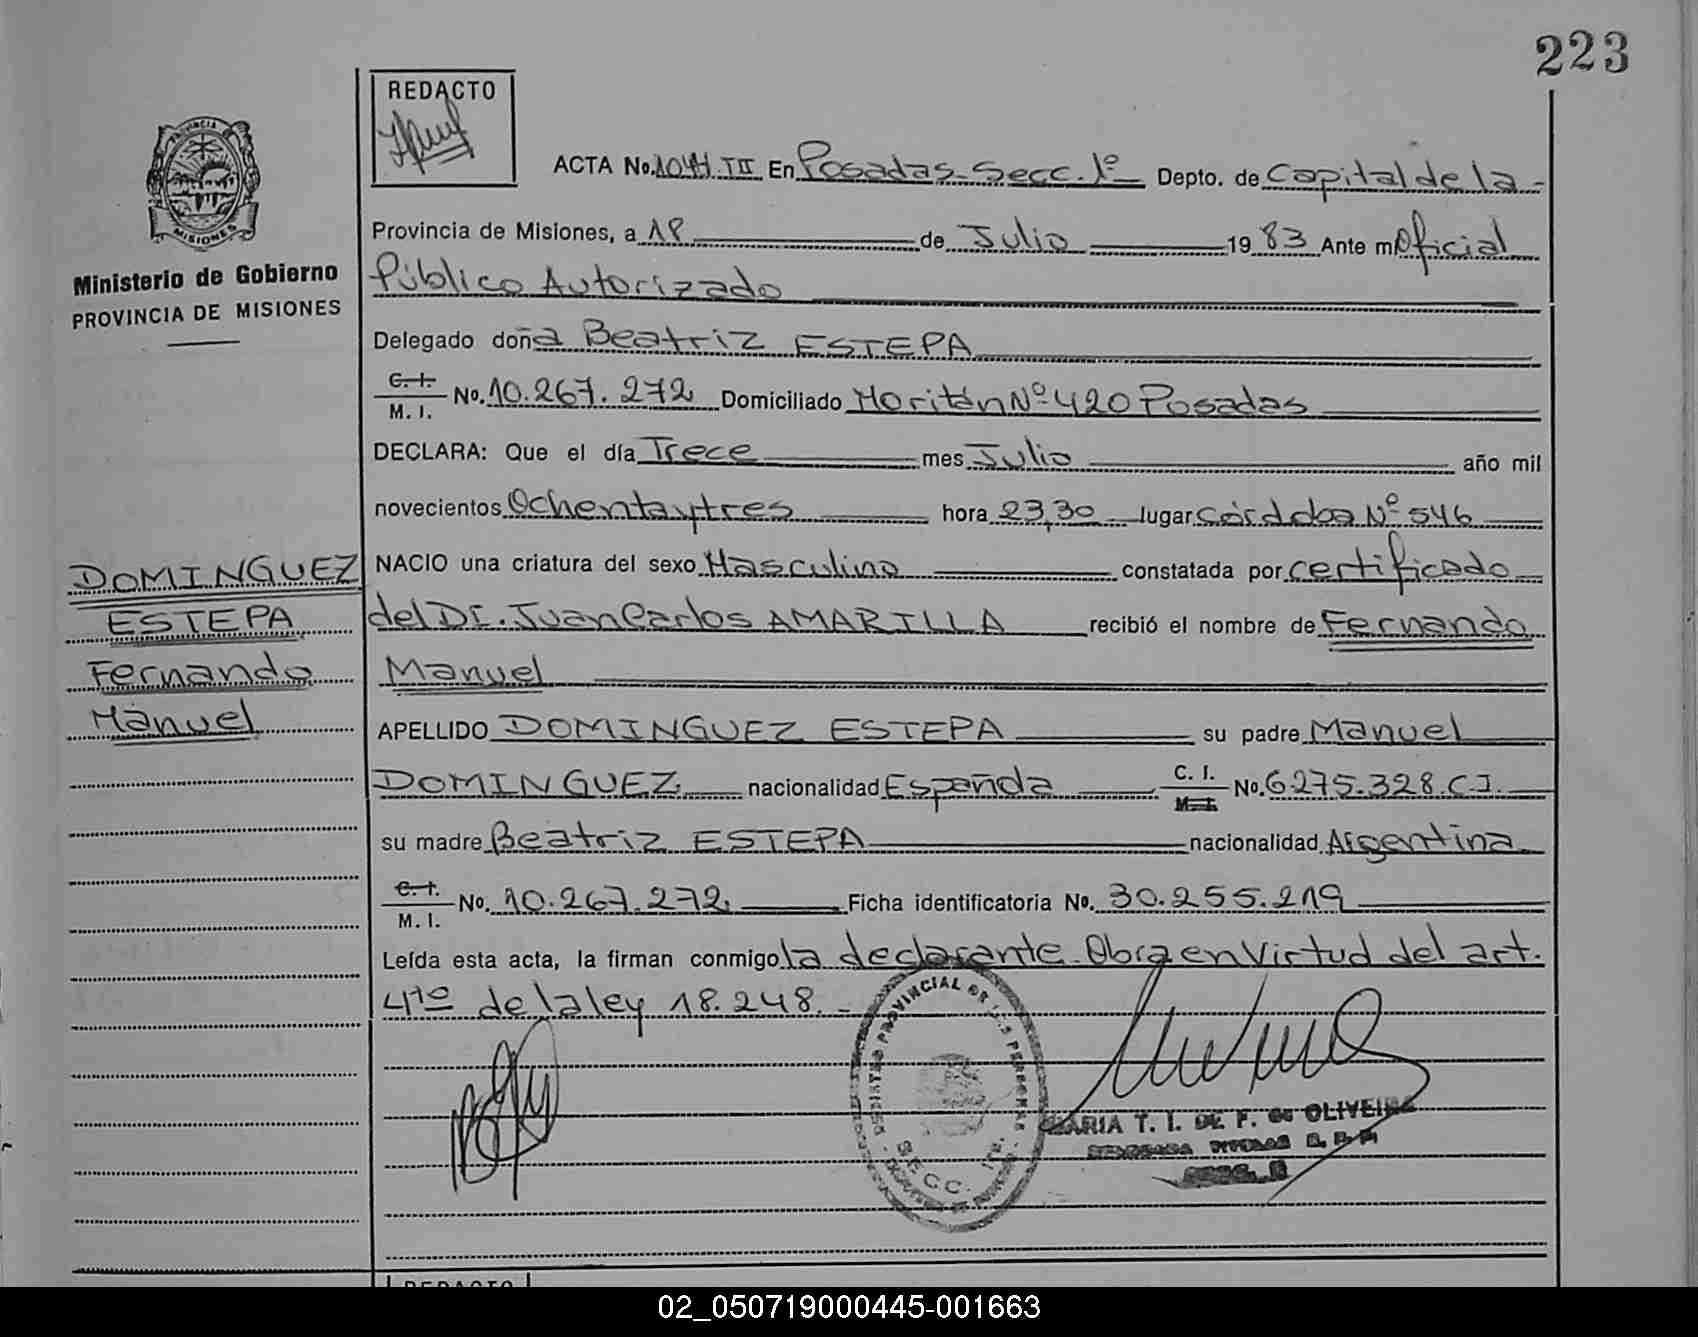 223
REDACTO
PROVINCIA
MISIONES
Ministerio de Gobierno
PROVINCIA DE MISIONES
ACTA No. III En Posadas-Secc. 1º Depto. de Capital de la-
Provincia de Misiones, a 18 de Julio 1983 Ante mí Oficial
Público Autorizado
Delegado doña Beatriz ESTEPA
C. I. M. I. No. 10.267.272 Domiciliado Nº 420 Posadas
DECLARA: Que el día Trece mes Julio año mil
novecientos Ochentaytres hora 23,30 lugar Córdoba Nº 546
NACIO una criatura del sexo Masculino constatada por certificado
del Dr. Juan Carlos AMARILLA recibió el nombre de Fernando
Manuel
APELLIDO DOMINGUEZ ESTEPA su padre Manuel
DOMINGUEZ nacionalidad Española C. I. M. I. No. 6.275.328 C.I.
su madre Beatriz ESTEPA nacionalidad Argentina
C. I. M. I. No. 10.267.272 Ficha identificatoria No. 30.255.219
Leída esta acta, la firman conmigo la declarante. Obra en Virtud del art.
4to de la ley 18.248.-
DOMINGUEZ
ESTEPA
Fernando
Manuel
PROVINCIAL DE LAS PERSONAS
SECC. 1ra.
MARIA T. I. DE F. de OLIVEIRA
REDACTO
02_050719000445-001663